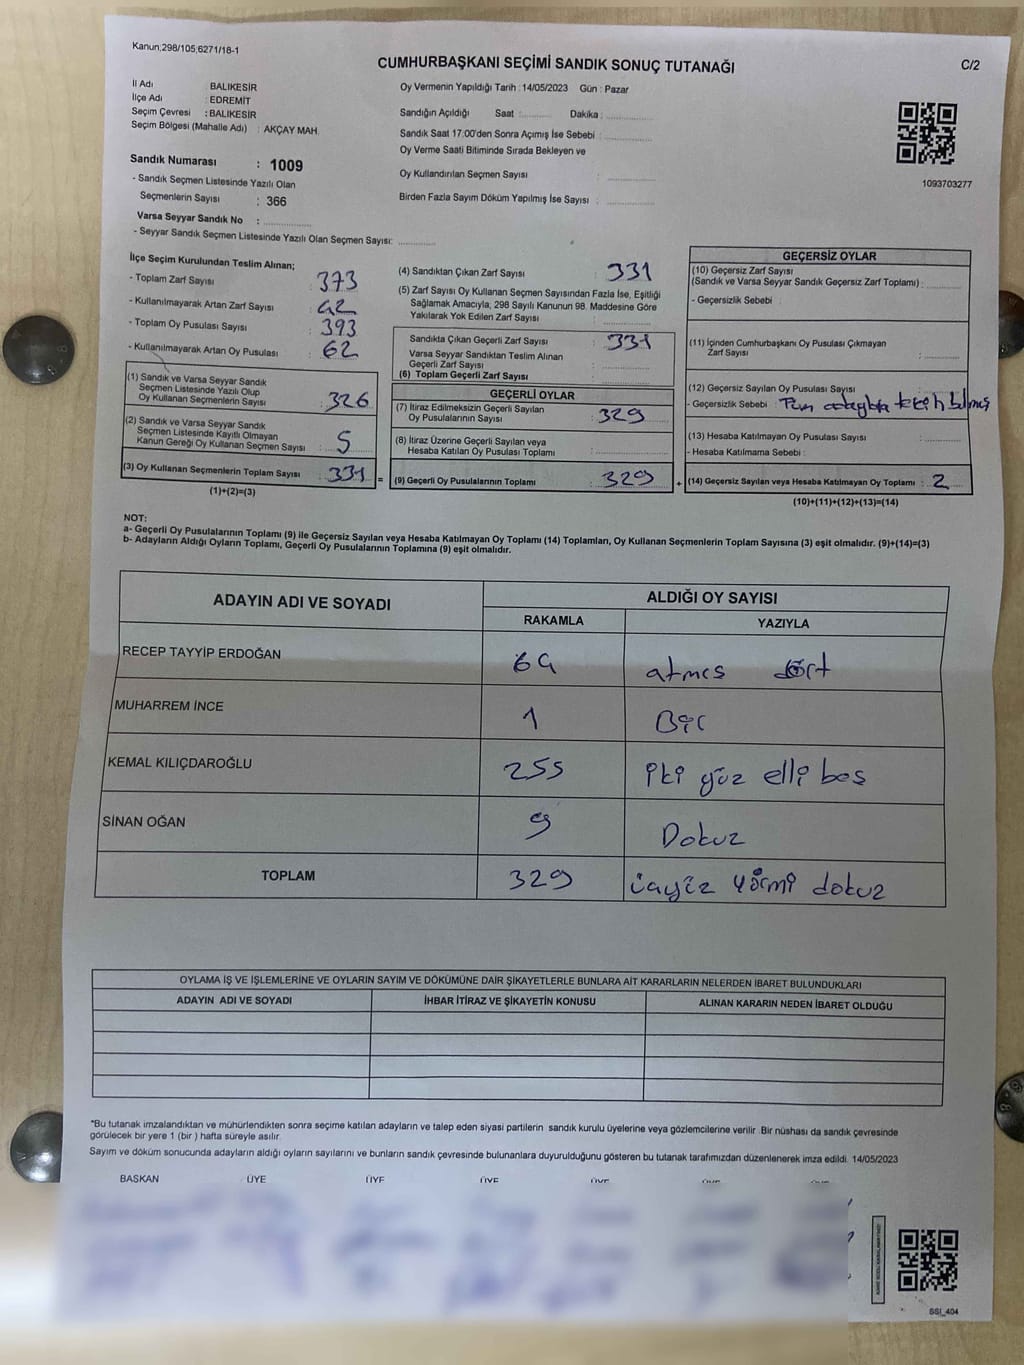 Kanun;298/105;6271/18-1
CUMHURBAŞKANI SEÇİMİ SANDIK SONUÇ TUTANAĞI
C/2
İl Adı BALIKESİR
İlçe Adı : EDREMİT
Seçim Çevresi : BALIKESİR
Seçim Bölgesi (Mahalle Adı) : AKÇAY MAH.
Sandık Numarası : 1009
- Sandık Seçmen Listesinde Yazılı Olan
Seçmenlerin Sayısı : 366
Varsa Seyyar Sandık No :
- Seyyar Sandık Seçmen Listesinde Yazılı Olan Seçmen Sayısı:
Oy Vermenin Yapıldığı Tarih : 14/05/2023 Gün : Pazar
Sandığın Açıldığı Saat : Dakika :
Sandık Saat 17:00'den Sonra Açımış İse Sebebi :
Oy Verme Saati Bitiminde Sırada Bekleyen ve
Oy Kullandırılan Seçmen Sayısı :
Birden Fazla Sayım Döküm Yapılmış İse Sayısı :
1093703277
İlçe Seçim Kurulundan Teslim Alınan;
- Toplam Zarf Sayısı : 373
- Kullanılmayarak Artan Zarf Sayısı : 42
- Toplam Oy Pusulası Sayısı : 393
- Kullanılmayarak Artan Oy Pusulası : 62
(1) Sandık ve Varsa Seyyar Sandık
Seçmen Listesinde Yazılı Olup
Oy Kullanan Seçmenlerin Sayısı : 326
(2) Sandık ve Varsa Seyyar Sandık
Seçmen Listesinde Kayıtlı Olmayan
Kanun Gereği Oy Kullanan Seçmen Sayısı : 5
(3) Oy Kullanan Seçmenlerin Toplam Sayısı : 331
(1)+(2)=(3)
(4) Sandıktan Çıkan Zarf Sayısı : 331
(5) Zarf Sayısı Oy Kullanan Seçmen Sayısından Fazla İse, Eşitliği
Sağlamak Amacıyla, 298 Sayılı Kanunun 98. Maddesine Göre
Yakılarak Yok Edilen Zarf Sayısı :
Sandıkta Çıkan Geçerli Zarf Sayısı : 331
Varsa Seyyar Sandıktan Teslim Alınan
Geçerli Zarf Sayısı :
(6) Toplam Geçerli Zarf Sayısı :
GEÇERLİ OYLAR
(7) İtiraz Edilmeksizin Geçerli Sayılan
Oy Pusulalarının Sayısı : 329
(8) İtiraz Üzerine Geçerli Sayılan veya
Hesaba Katılan Oy Pusulası Toplamı :
= (9) Geçerli Oy Pusulalarının Toplamı : 329
GEÇERSİZ OYLAR
(10) Geçersiz Zarf Sayısı
(Sandık ve Varsa Seyyar Sandık Geçersiz Zarf Toplamı) :
- Geçersizlik Sebebi :
(11) İçinden Cumhurbaşkanı Oy Pusulası Çıkmayan
Zarf Sayısı :
(12) Geçersiz Sayılan Oy Pusulası Sayısı :
- Geçersizlik Sebebi :
(13) Hesaba Katılmayan Oy Pusulası Sayısı :
- Hesaba Katılmama Sebebi :
+ (14) Geçersiz Sayılan veya Hesaba Katılmayan Oy Toplamı : 2
(10)+(11)+(12)+(13)=(14)
NOT:
a- Geçerli Oy Pusulalarının Toplamı (9) ile Geçersiz Sayılan veya Hesaba Katılmayan Oy Toplamı (14) Toplamları, Oy Kullanan Seçmenlerin Toplam Sayısına (3) eşit olmalıdır. (9)+(14)=(3)
b- Adayların Aldığı Oyların Toplamı, Geçerli Oy Pusulalarının Toplamına (9) eşit olmalıdır.
ADAYIN ADI VE SOYADI
ALDIĞI OY SAYISI
RAKAMLA YAZIYLA
RECEP TAYYİP ERDOĞAN 64 atmış dört
MUHARREM İNCE 1 Bir
KEMAL KILIÇDAROĞLU 255 iki yüz elli beş
SİNAN OĞAN 9 Dokuz
TOPLAM 329 üçyüz yirmi dokuz
OYLAMA İŞ VE İŞLEMLERİNE VE OYLARIN SAYIM VE DÖKÜMÜNE DAİR ŞİKAYETLERLE BUNLARA AİT KARARLARIN NELERDEN İBARET BULUNDUKLARI
ADAYIN ADI VE SOYADI İHBAR İTİRAZ VE ŞİKAYETİN KONUSU ALINAN KARARIN NEDEN İBARET OLDUĞU
*Bu tutanak imzalandıktan ve mühürlendikten sonra seçime katılan adayların ve talep eden siyasi partilerin sandık kurulu üyelerine veya gözlemcilerine verilir. Bir nüshası da sandık çevresinde
görülecek bir yere 1 (bir ) hafta süreyle asılır.
Sayım ve döküm sonucunda adayların aldığı oyların sayılarını ve bunların sandık çevresinde bulunanlara duyurulduğunu gösteren bu tutanak tarafımızdan düzenlenerek imza edildi. 14/05/2023
BAŞKAN ÜYE ÜYE ÜYE ÜYE ÜYE ÜYE
SSI_404